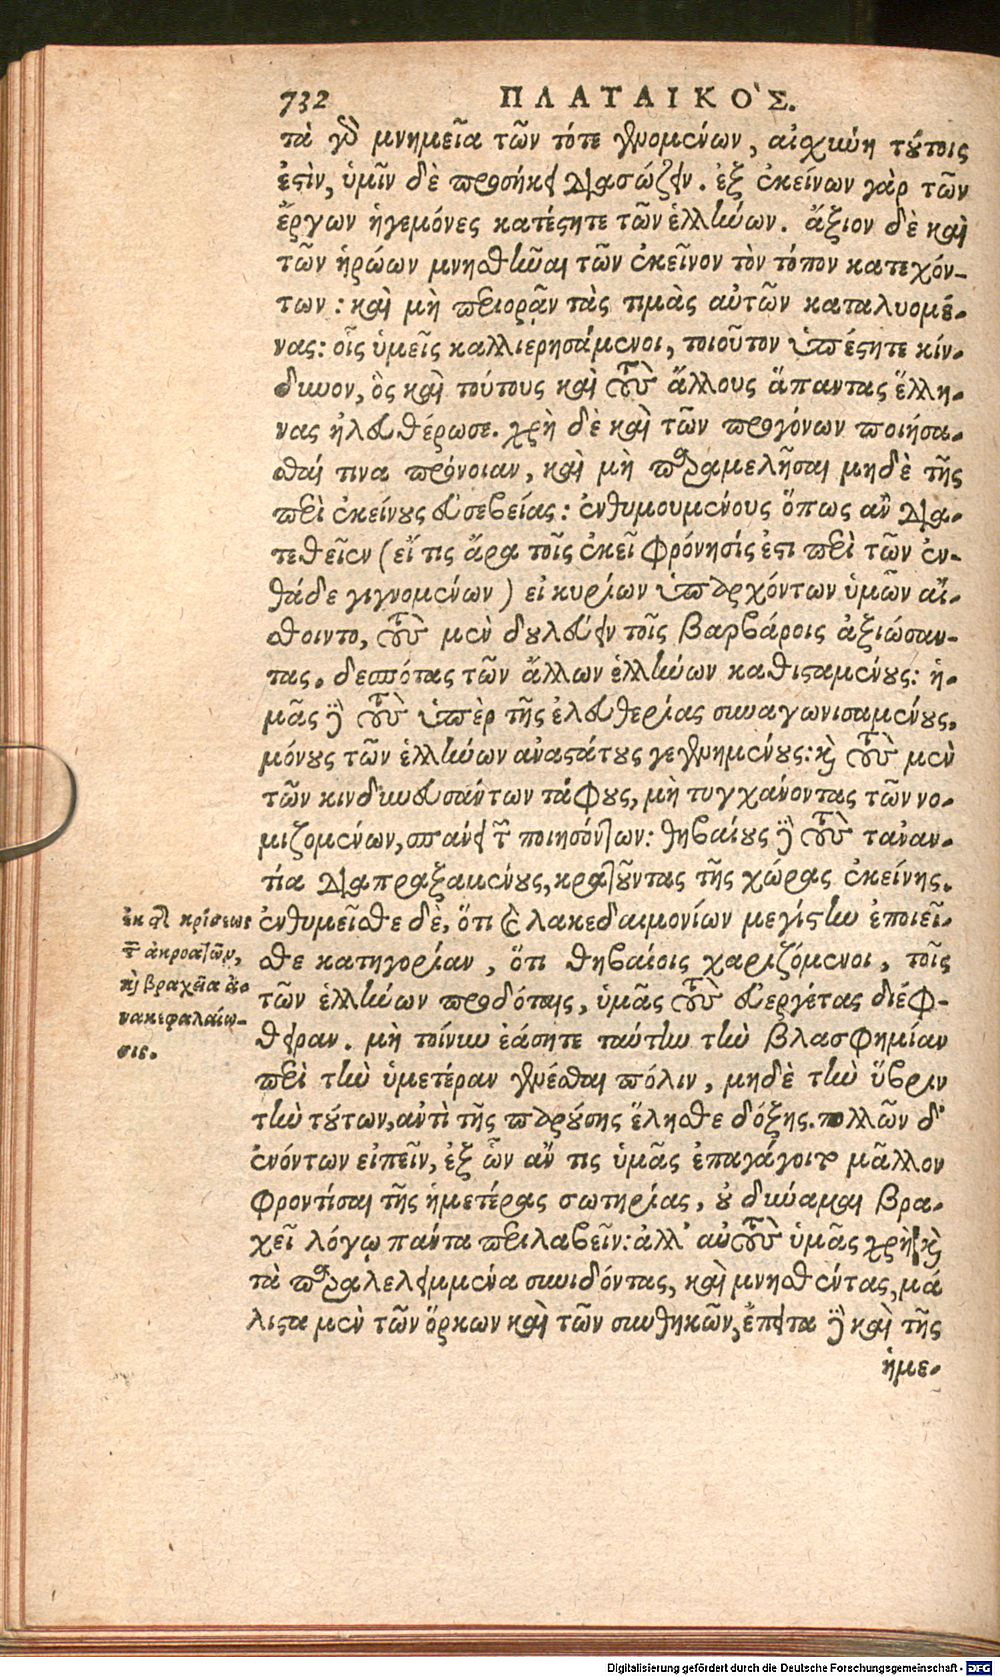 732 ΠΛΑΤΑΙΚΟ`Σ.
τὰ γὸ μνημεῖα τῶν τότε γενομένων, αἰσχύνη τούτοις
ἐστὶν, ὑμῖν δὲ προσήκει διασώζειν. ἐξ ἐκείνων γὰρ τῶν
ἔργων ἡγεμόνες κατέστητε τῶν ἑλλήνων. ἄξιον δὲ καὶ
τῶν ἡρώων μνησθῆναι τῶν ἐκεῖνον τὸν τόπον κατεχόν-
των: καὶ μὴ περιορᾷν τὰς τιμὰς αὐτῶν καταλυομέ-
νας: οἷς ὑμεῖς καλλιερησάμενοι, τοιοῦτον ὑπέστητε κίν-
δυνον, ὃς καὶ τούτους καὶ τοὺς ἄλλους ἅπαντας ἕλλη-
νας ἠλευθέρωσε. χρὴ δὲ καὶ τῶν προγόνων ποιήσα-
σθαί τινα πρόνοιαν, καὶ μὴ παραμελῆσαι μηδὲ τῆς
περὶ ἐκείνους εὐσεβείας: ἐνθυμουμένους ὅπως ἂν δια-
τεθεῖεν (εἴ τις ἄρα τοῖς ἐκεῖ φρόνησίς ἐστι περὶ τῶν ἐν-
θάδε γιγνομένων) εἰ κυρίων ὑπαρχόντων ὑμῶν αἴ-
σθοιντο, τοὺς μὲν δουλεύειν τοῖς βαρβάροις ἀξιώσαν-
τας, δεσπότας τῶν ἄλλων ἑλλήνων καθισταμένους: ἡ-
μᾶς δὲ τοὺς ὑπὲρ τῆς ἐλευθερίας συναγωνισαμένους,
μόνους τῶν ἑλλήνων ἀναστάτους γεγενημένους: καὶ τοὺς μὲν
τῶν κινδυνευσάντων τάφους, μὴ τυγχάνοντας τῶν νο-
μιζομένων, σπάνει τῶν ποιησόντων: θηβαίους δὲ τοὺς τἀναν-
τία διαπραξαμένους, κρατοῦντας τῆς χώρας ἐκείνης.
ἐνθυμεῖσθε δὲ, ὅτι λακεδαιμονίων μεγίστην ἐποιεῖ-
σθε κατηγορίαν, ὅτι θηβαίοις χαριζόμενοι, τοῖς
τῶν ἑλλήνων προδόταις, ὑμᾶς τοὺς εὐεργέτας διέφ-
θειραν. μὴ τοίνυν ἐάσητε ταύτην τὴν βλασφημίαν
περὶ τὴν ὑμετέραν γενέσθαι πόλιν, μηδὲ τὴν ὕβριν
τὴν τούτων, ἀντὶ τῆς παρούσης ἕλησθε δόξης. πολλῶν δ'
ἐνόντων εἰπεῖν, ἐξ ὧν ἄν τις ὑμᾶς ἐπαγάγοιτο μᾶλλον
φροντίσαι τῆς ἡμετέρας σωτηρίας, οὐ δύναμαι βρα-
χεῖ λόγῳ πάντα περιλαβεῖν: ἀλλ' αὐτοὺς ὑμᾶς χρὴ καὶ
τὰ παραλελειμμένα συνιδόντας, καὶ μνησθέντας, μά
λιστα μὲν τῶν ὅρκων καὶ τῶν συνθηκῶν, ἔπειτα δὲ καὶ τῆς
ἡμε-
ἐκ τῆς κρίσεως
τῶν ἀκροατῶν,
καὶ βραχεῖα ἀ-
νακεφαλαίω-
σις.
Digitalisierung gefördert durch die Deutsche Forschungsgemeinschaft - DFG